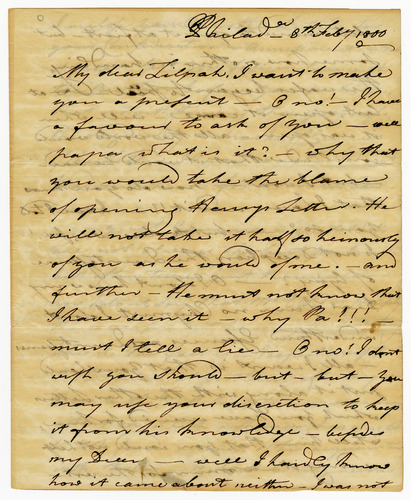 Philada 8th Feby 1800
My dear Zilpah, I want to make
you a present — O no! — I have
a favour to ask of you — well
papa what is it? — why that
you would take the blame
of opening Henrys Letter. He
will not take it half so heinously
of you as he would of me. — and
further — He must not know that
I have seen it — why Pa!!! —
must I tell a lie — O no! I dont
wish you should — but — but — You
may use your discretion to keep
it from his knowledge — besides
my Dear — well I hardly know
how it came about neither — I was not